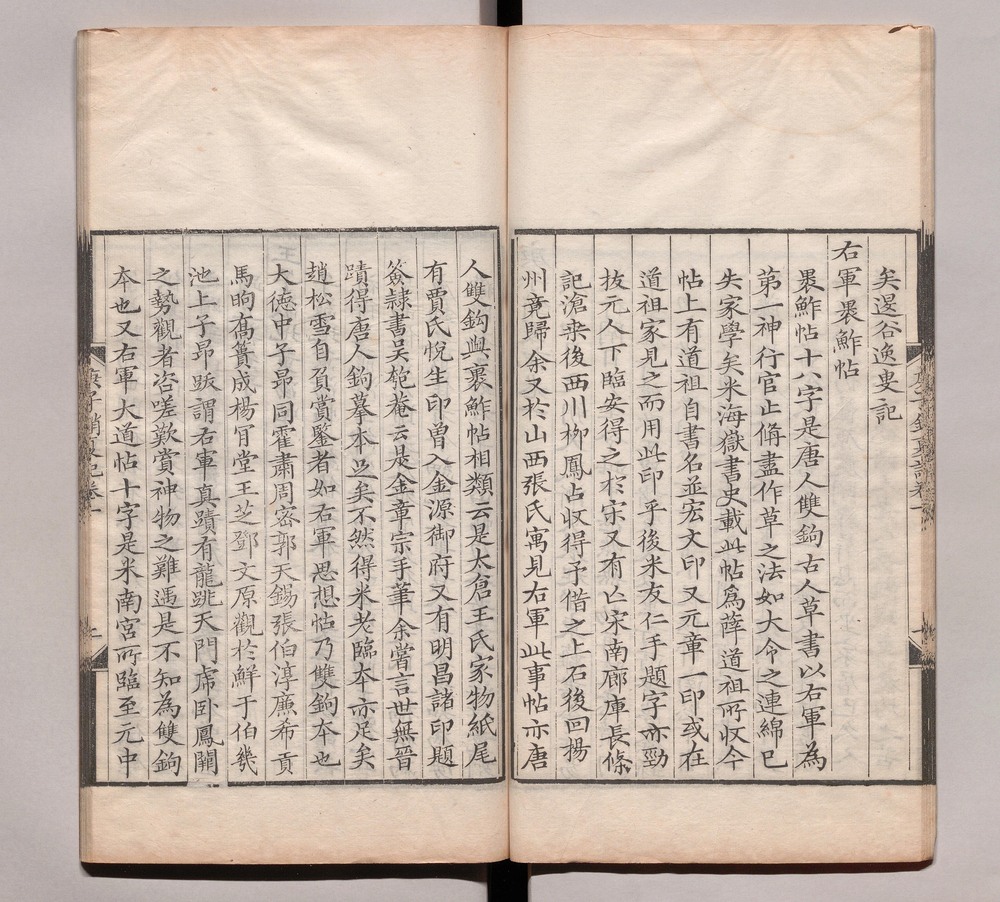 矣退谷逸叟記
右軍褁鮓帖
褁鮓帖十六字是唐人雙鉤古人草書以右軍為
第一神行官止脩盡作草之法如大令之連綿已
失家學矣米海嶽書史載此帖為薛道祖所收今
帖上有道祖自書名並宏文印又元章一印或在
道祖家見之而用此印乎後米友仁手題字亦勁
拔元人下臨安得之於宋又有亾宋南廊庫長條
記滄桒後西川柳鳳占收得予借之上石後回揚
州竟歸余又於山西張氏寓見右軍此事帖亦唐
人雙鈎與裹鮓帖相類云是太倉王氏家物紙尾
有賈氏悅生印曾入金源御府又有明昌諸印題
簽隷書吴匏菴云是金章宗手筆余嘗言世無晉
蹟得唐人鈎摹本足矣不然得米老臨本亦足矣
趙松雪自負賞鑒者如右軍思想帖乃雙鉤本也
大德中子昂同霍肅周密郭天錫張伯淳廉希貢
馬昫喬簣成楊肯堂王芝鄧文原觀於鮮于伯幾
池上子昂跋謂右軍真蹟有龍跳天門虎臥鳳闕
之勢觀者咨嗟歎賞神物之難遇是不知為雙鉤
本也又右軍大道帖十字是米南宮所臨至元中
庚子銷夏記卷一